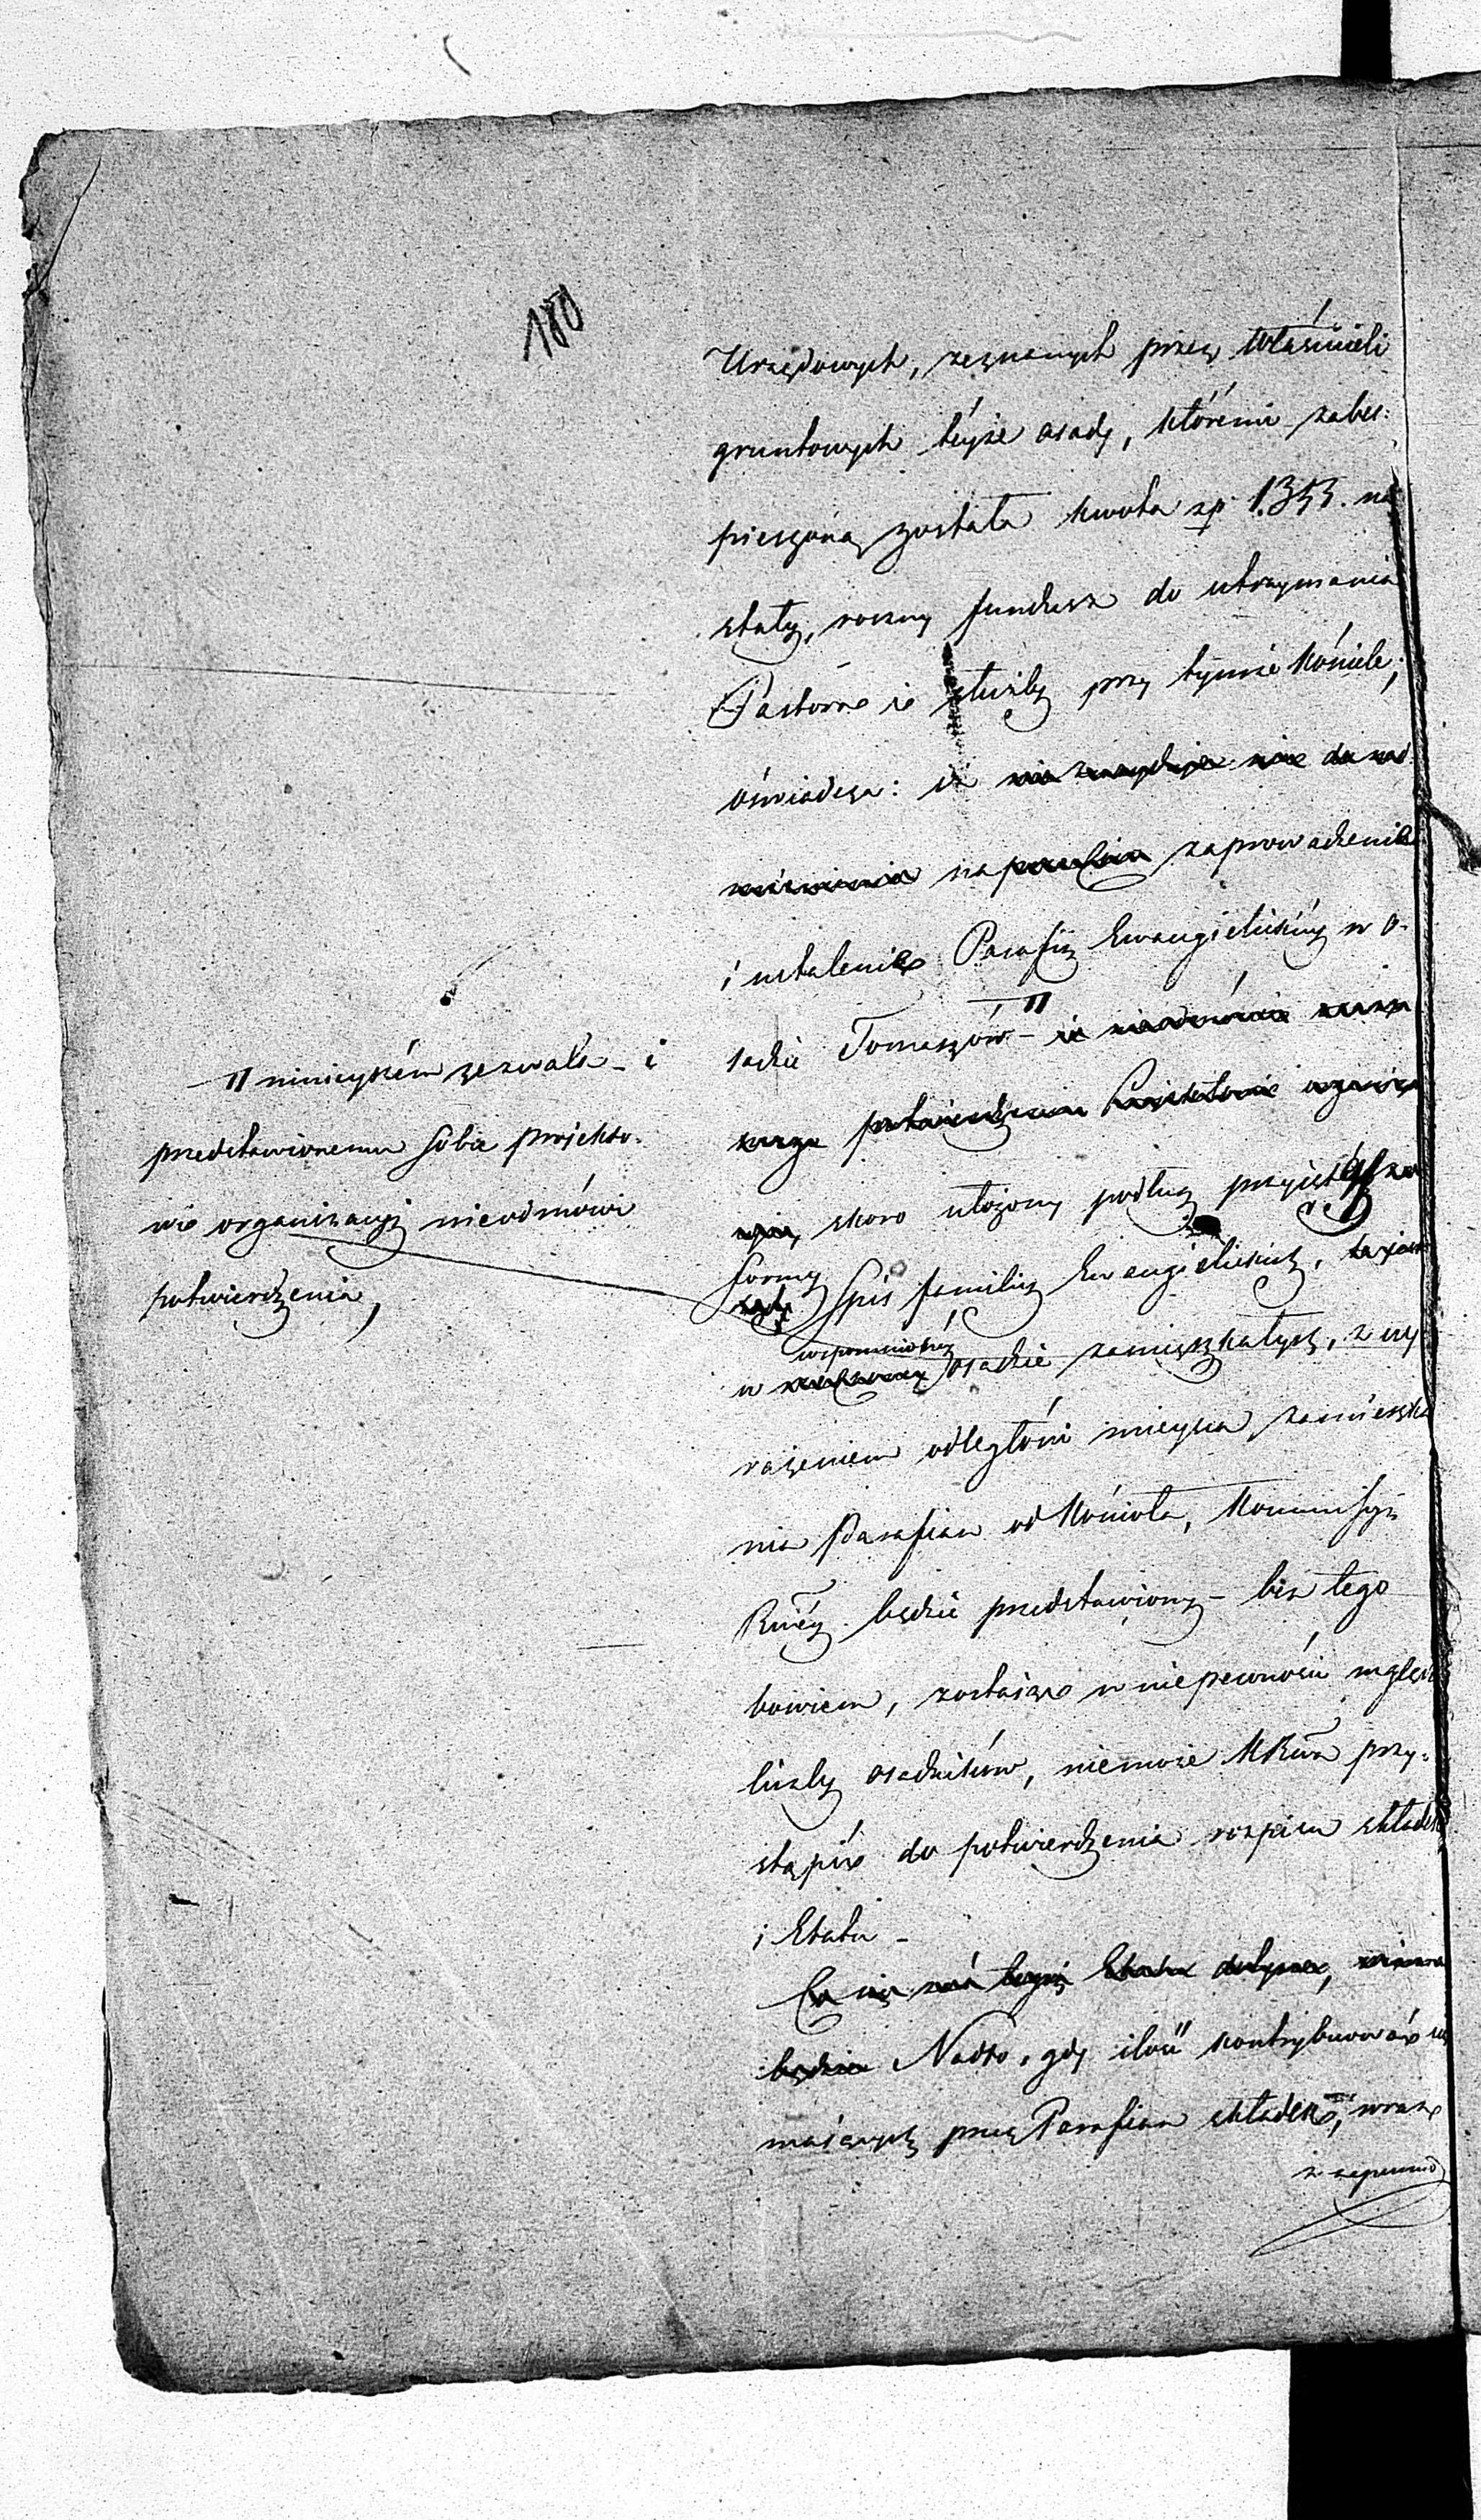 180
Urzędowych, zeznanych przez Właścicieli
gruntowych teyże osady, któremi zabez=
pieczoną została kwota zp. 1.353. na
stały, roczny fundusz do utrzymania
Pastora i służby przy tymże Kościele,
oświadcza: iż nie znayduje nic do nad
mienienia na zaprowadzenie
i ustalenie Parafii Ewangielickiéy w o-
sadzie Tomaszów - "
skoro ułożony podług przyiętéy
formy Spis familiy Ewangielickich,
w wspomnionéy osadzie zamięszkałych, z wy
rażeniem odległości mieysca zamieszka
nia Parafian od Kościoła, Kommissyi
Rwéy będzie przedstawiony - bez tego
bowiem, zostaiąc w niepewności względ
liczby osadników, niemoże KRwa przy=
stąpić do potwierdzenia rozpisu składek
i Etatu -
Co się zaś tegoż Etatu dotycze,
będzie Nadto, gdy ilość kontrybuować się
maiących przez Parafian składek, wraz
z zapewnio
" ninieyszém zezwala - i
przedstawionemu sobie projekto=
wi organizacyi nieodmówi
potwierdzenia,